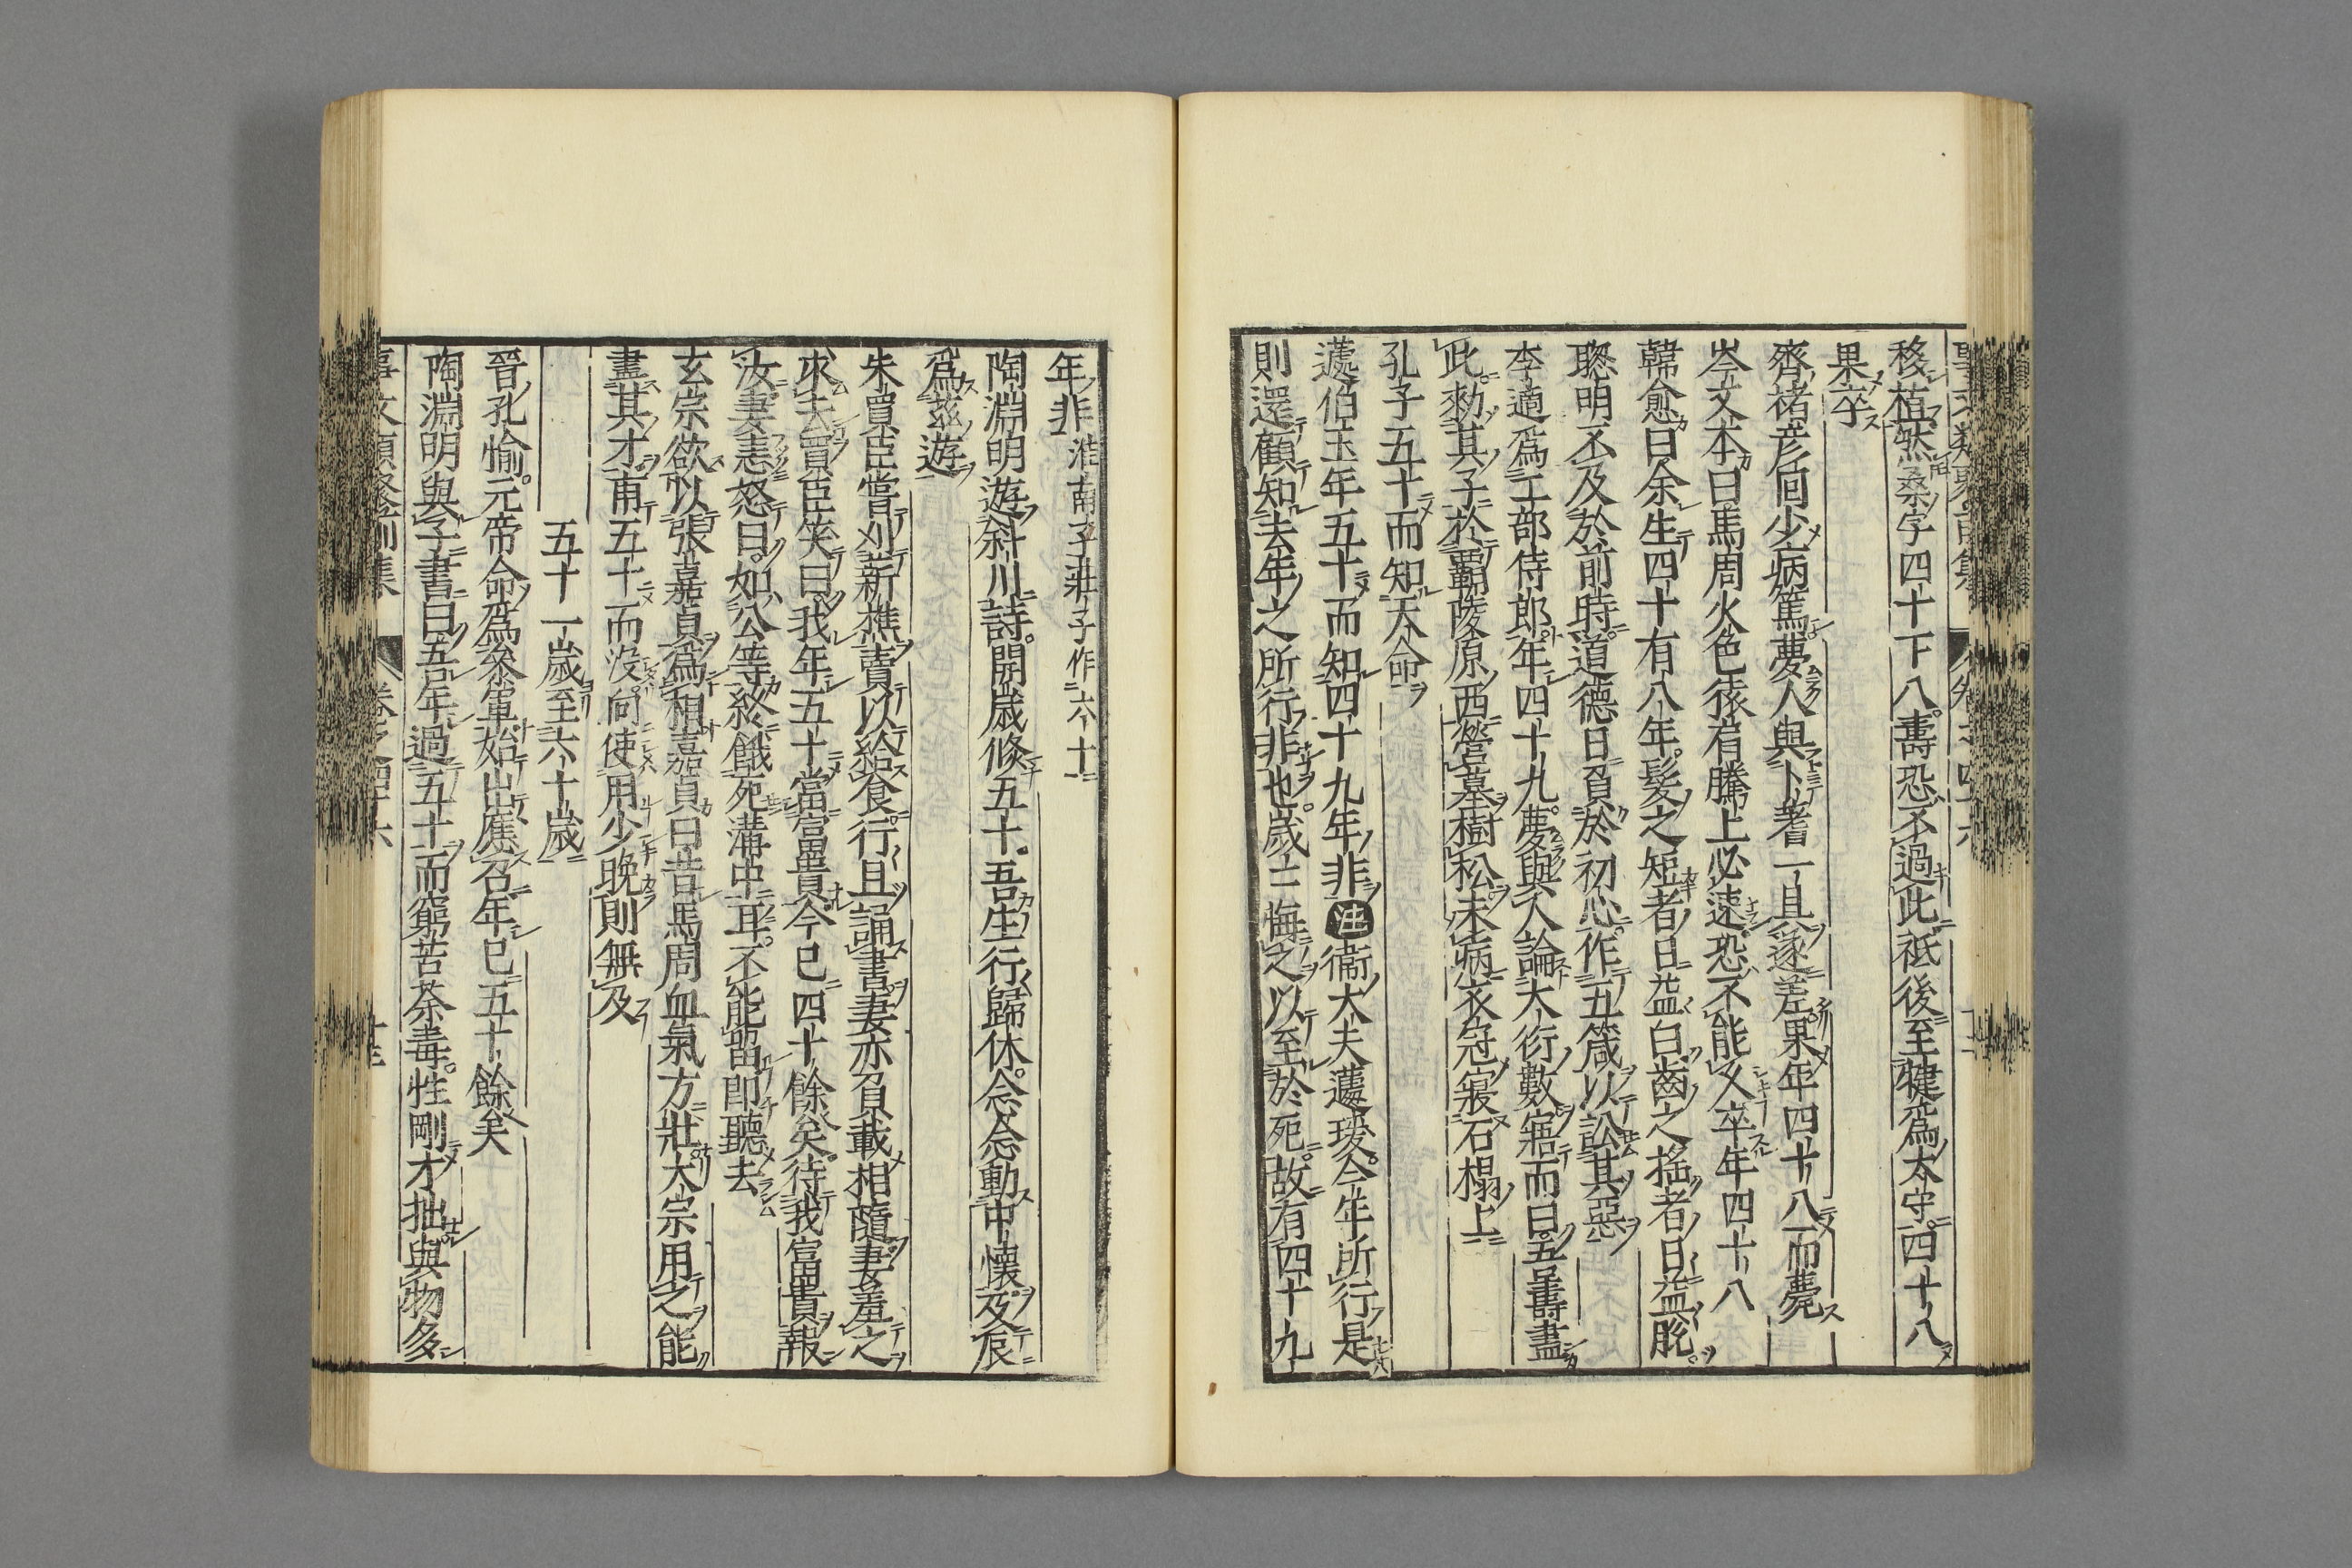 移植然桑字四十下八壽恐不過此祗後至犍爲太守四十八
果卒
齊褚彦回少病篤夢人與卜蓍一具遂差果年四十八而薨
岑文本曰馬周火色鳶肩騰上必速恐不能久卒年四十八
韓愈曰余生四十有八年髮之短者日益白齒之揺者日益脱
聦明不及於前時道德日負於初心作五箴以訟其惡
李適爲工部侍郎年四十九夢與人論大衍數寤而曰吾壽盡
此勑其子於覇陵原西營墓樹松未病衣冠寢石榻上
孔子五十而知天命
蘧伯玉年五十而知四十九年非注衞大夫蘧瑗今年所行是
則還顧知去年之所行非也歳〻悔之以至於死故有四十九
年非淮南子莊子作六十
陶淵明遊斜川詩開歳倐五十吾生行歸休念〻動中懷及辰
爲茲遊
朱買臣嘗刈薪樵賣以給食行且誦書妻亦負載相隨妻羞之
求去買臣笑曰我年五十當富貴今已四十餘矣待我富貴報
汝妻恚怒曰如公等終餓死溝中耳不能留即聽去
玄宗欲以張嘉貞爲相嘉貞曰昔馬周血氣方壯太宗用之能
盡其才甫五十而没向使用少晚則無及
五十一歳至六十歳
晉孔愉元帝命爲參軍始出應召年已五十餘矣
陶淵明與子書曰吾年過五十而窮苦荼毒性剛才拙與物多